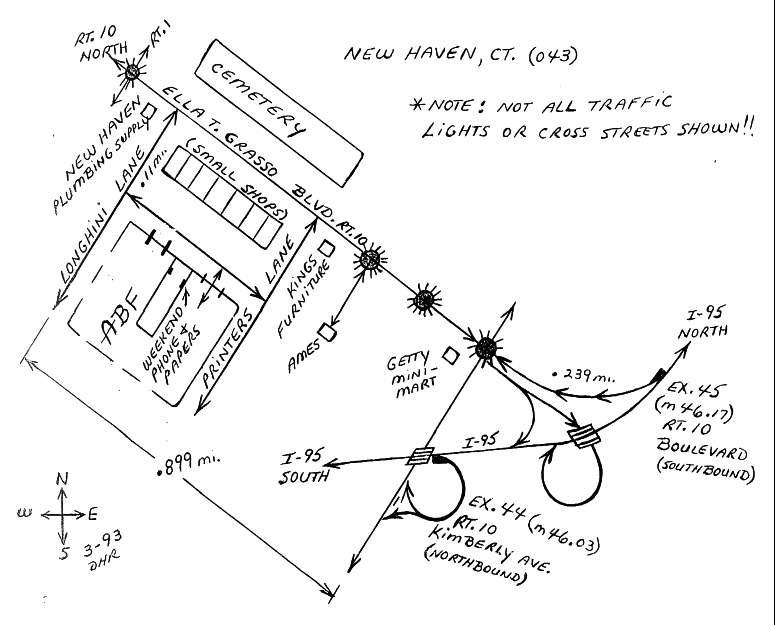 RT. 10
NORTH
RT. 1
NEW HAVEN, CT. (043)
*NOTE: NOT ALL TRAFFIC
LIGHTS OR CROSS STREETS SHOWN!!
CEMETERY
ELLA T. GRASSO BLVD. RT. 10
NEW HAVEN
PLUMBING SUPPLY
(SMALL SHOPS)
.11 mi.
LONGHINI LANE
PRINTERS LANE
KINGS
FURNITURE
AMES
ABF
WEEKEND
PHONE &
PAPERS
GETTY
MINI-
MART
I-95
NORTH
.239 mi.
EX. 45
(m 46.17)
RT. 10
BOULEVARD
(SOUTHBOUND)
I-95
I-95
SOUTH
.899 mi.
EX. 44 (m 46.03)
RT. 10
KIMBERLY AVE.
(NORTHBOUND)
N
W
E
S
3-93
DHR